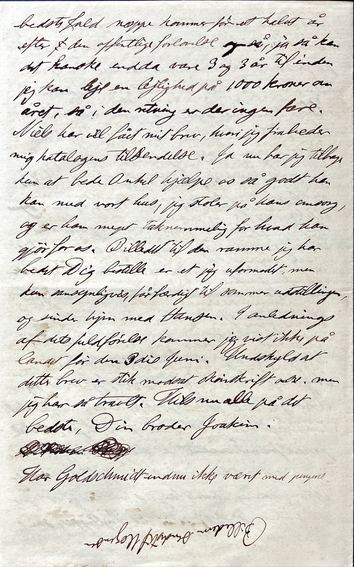 bedste fald neppe kommer før et halvt år
efter & den offentlige forlovelse også, ja så kan
det kanske endda vare 3 og 3 år til inden
jeg kan leje en lejlighed på 1000 kroner om
året, så i den retning er der ingen fare.
Niels har vel fået mit brev, hvori jeg frabeder
mig katalogens tilsendelse. Ja nu har jeg tilbage
kun at bede Onkel hjælpe os så godt han
kan med vort hus, jeg stoler på hans omsorg,
og er ham meget taknemmelig for hvad han
gjör for os. Billedet til den ramme jeg har
bedt Dig bestille er et jeg
kun sandsynligvis, får færdig til sommer udstillingen,
og sender hjem med Hansen. I anlednings
af dette kommer jeg vist ikke på
landet før den 3die Juni. Undskyld at
dette brev er stik modsat skönskrift osv. men
jeg har så travlt. Hils nu alle på det
bedste, Din broder Joakim.
Har Goldschmidt endnu ikke været med pengene